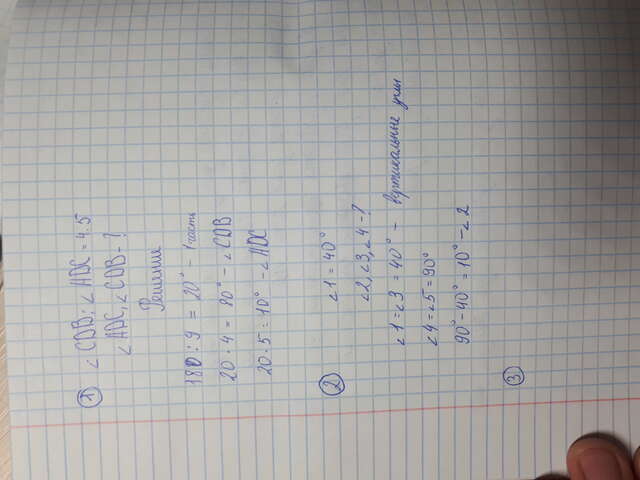 ① ∠CDB : ∠ADC = 4:5
∠ADC, ∠CDB - ?
Решение
180 : 9 = 20° - 1 часть
20 · 4 = 80° - ∠CDB
20 · 5 = 10° - ∠ADC
② ∠1 = 40°
∠2, ∠3, ∠4 - ?
∠1 = ∠3 = 40° - вертикальные углы
∠4 = ∠5 = 90°
90° - 40° = 10° - ∠2
③